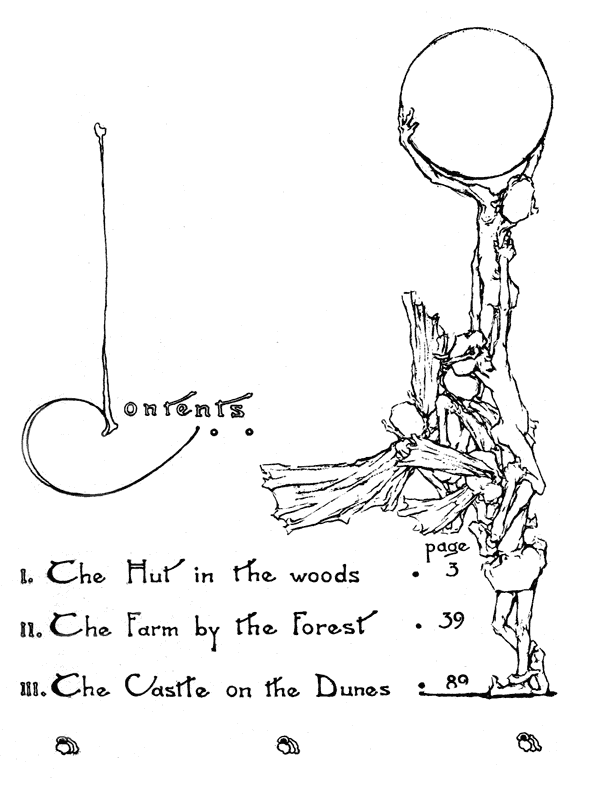 Contents
page
I. The Hut in the woods . 3
II. The Farm by the Forest . 39
III. The Castle on the Dunes . 89